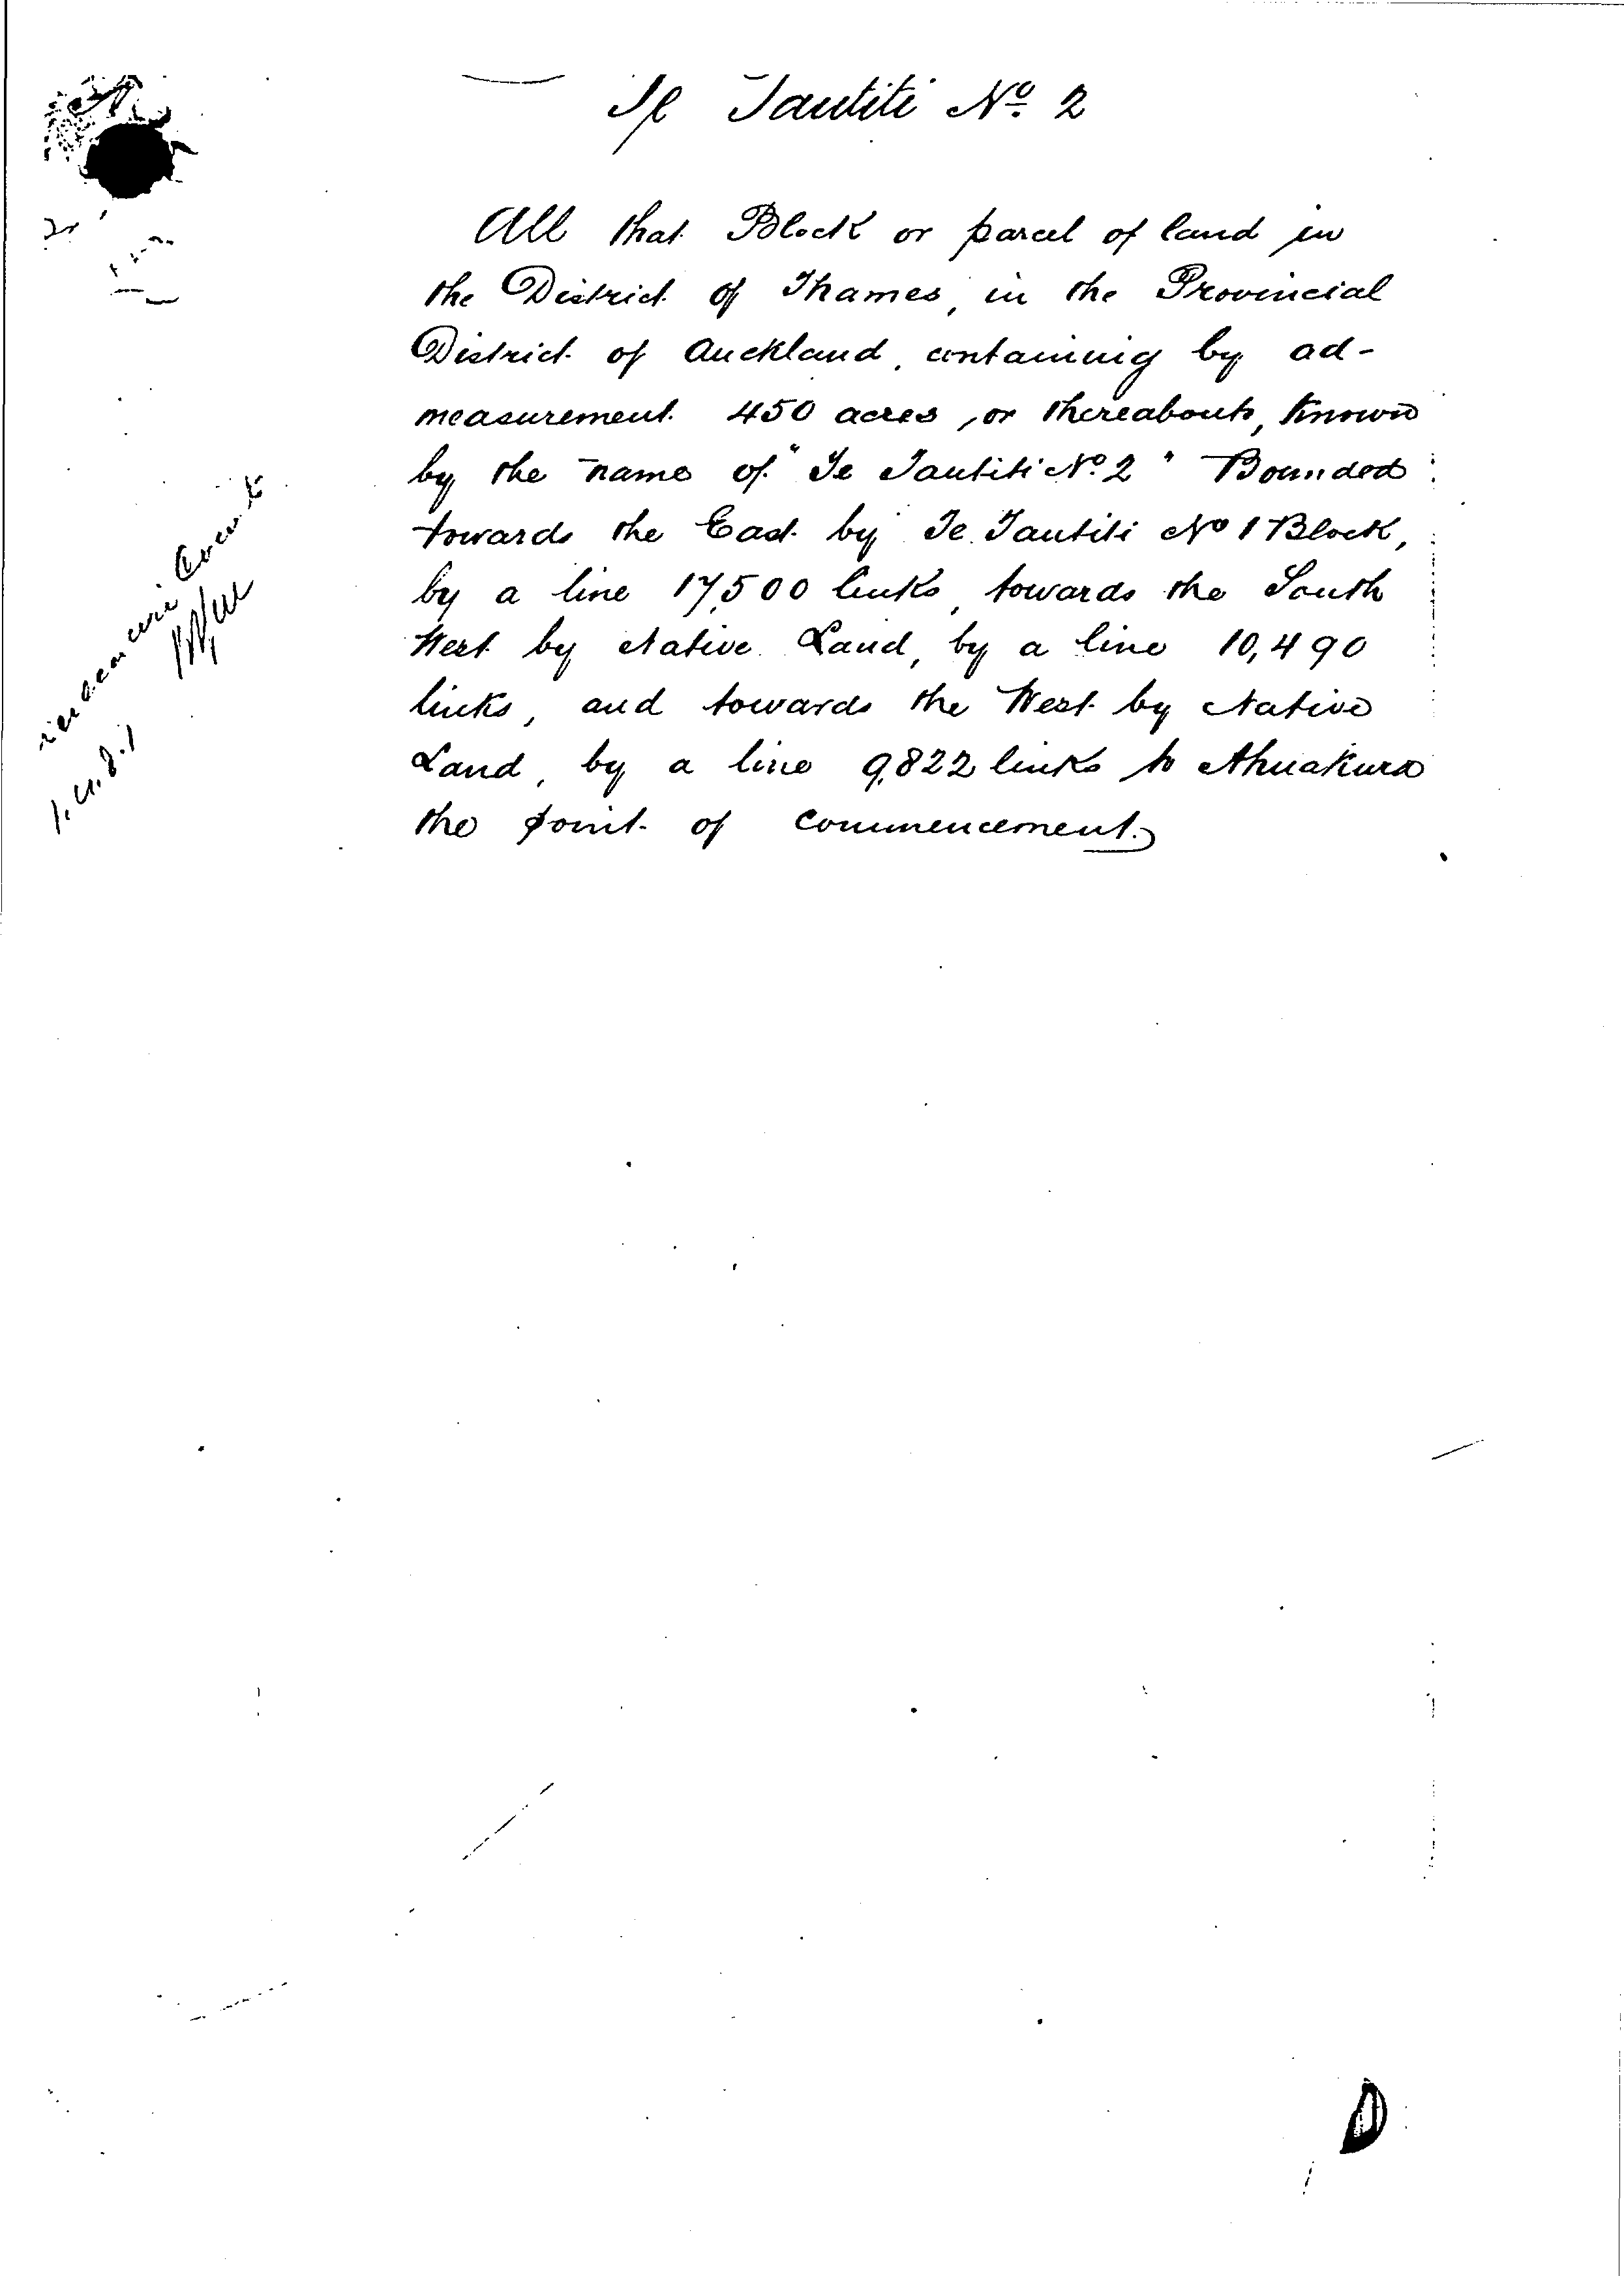 Te Tautiti No. 2
All that Block or parcel of land in
the District of Thames, in the Provincial
District of Auckland, containing by ad-
measurement 450 acres, or thereabouts, known
by the name of "Te Tautiti No. 2" Bounded
towards the East by Te Tautiti No 1 Block,
by a line 17,500 links, towards the South
West by Native Land, by a line 10,490
links, and towards the West by Native
Land, by a line 9,822 links to Ahuakura
the point of commencement.